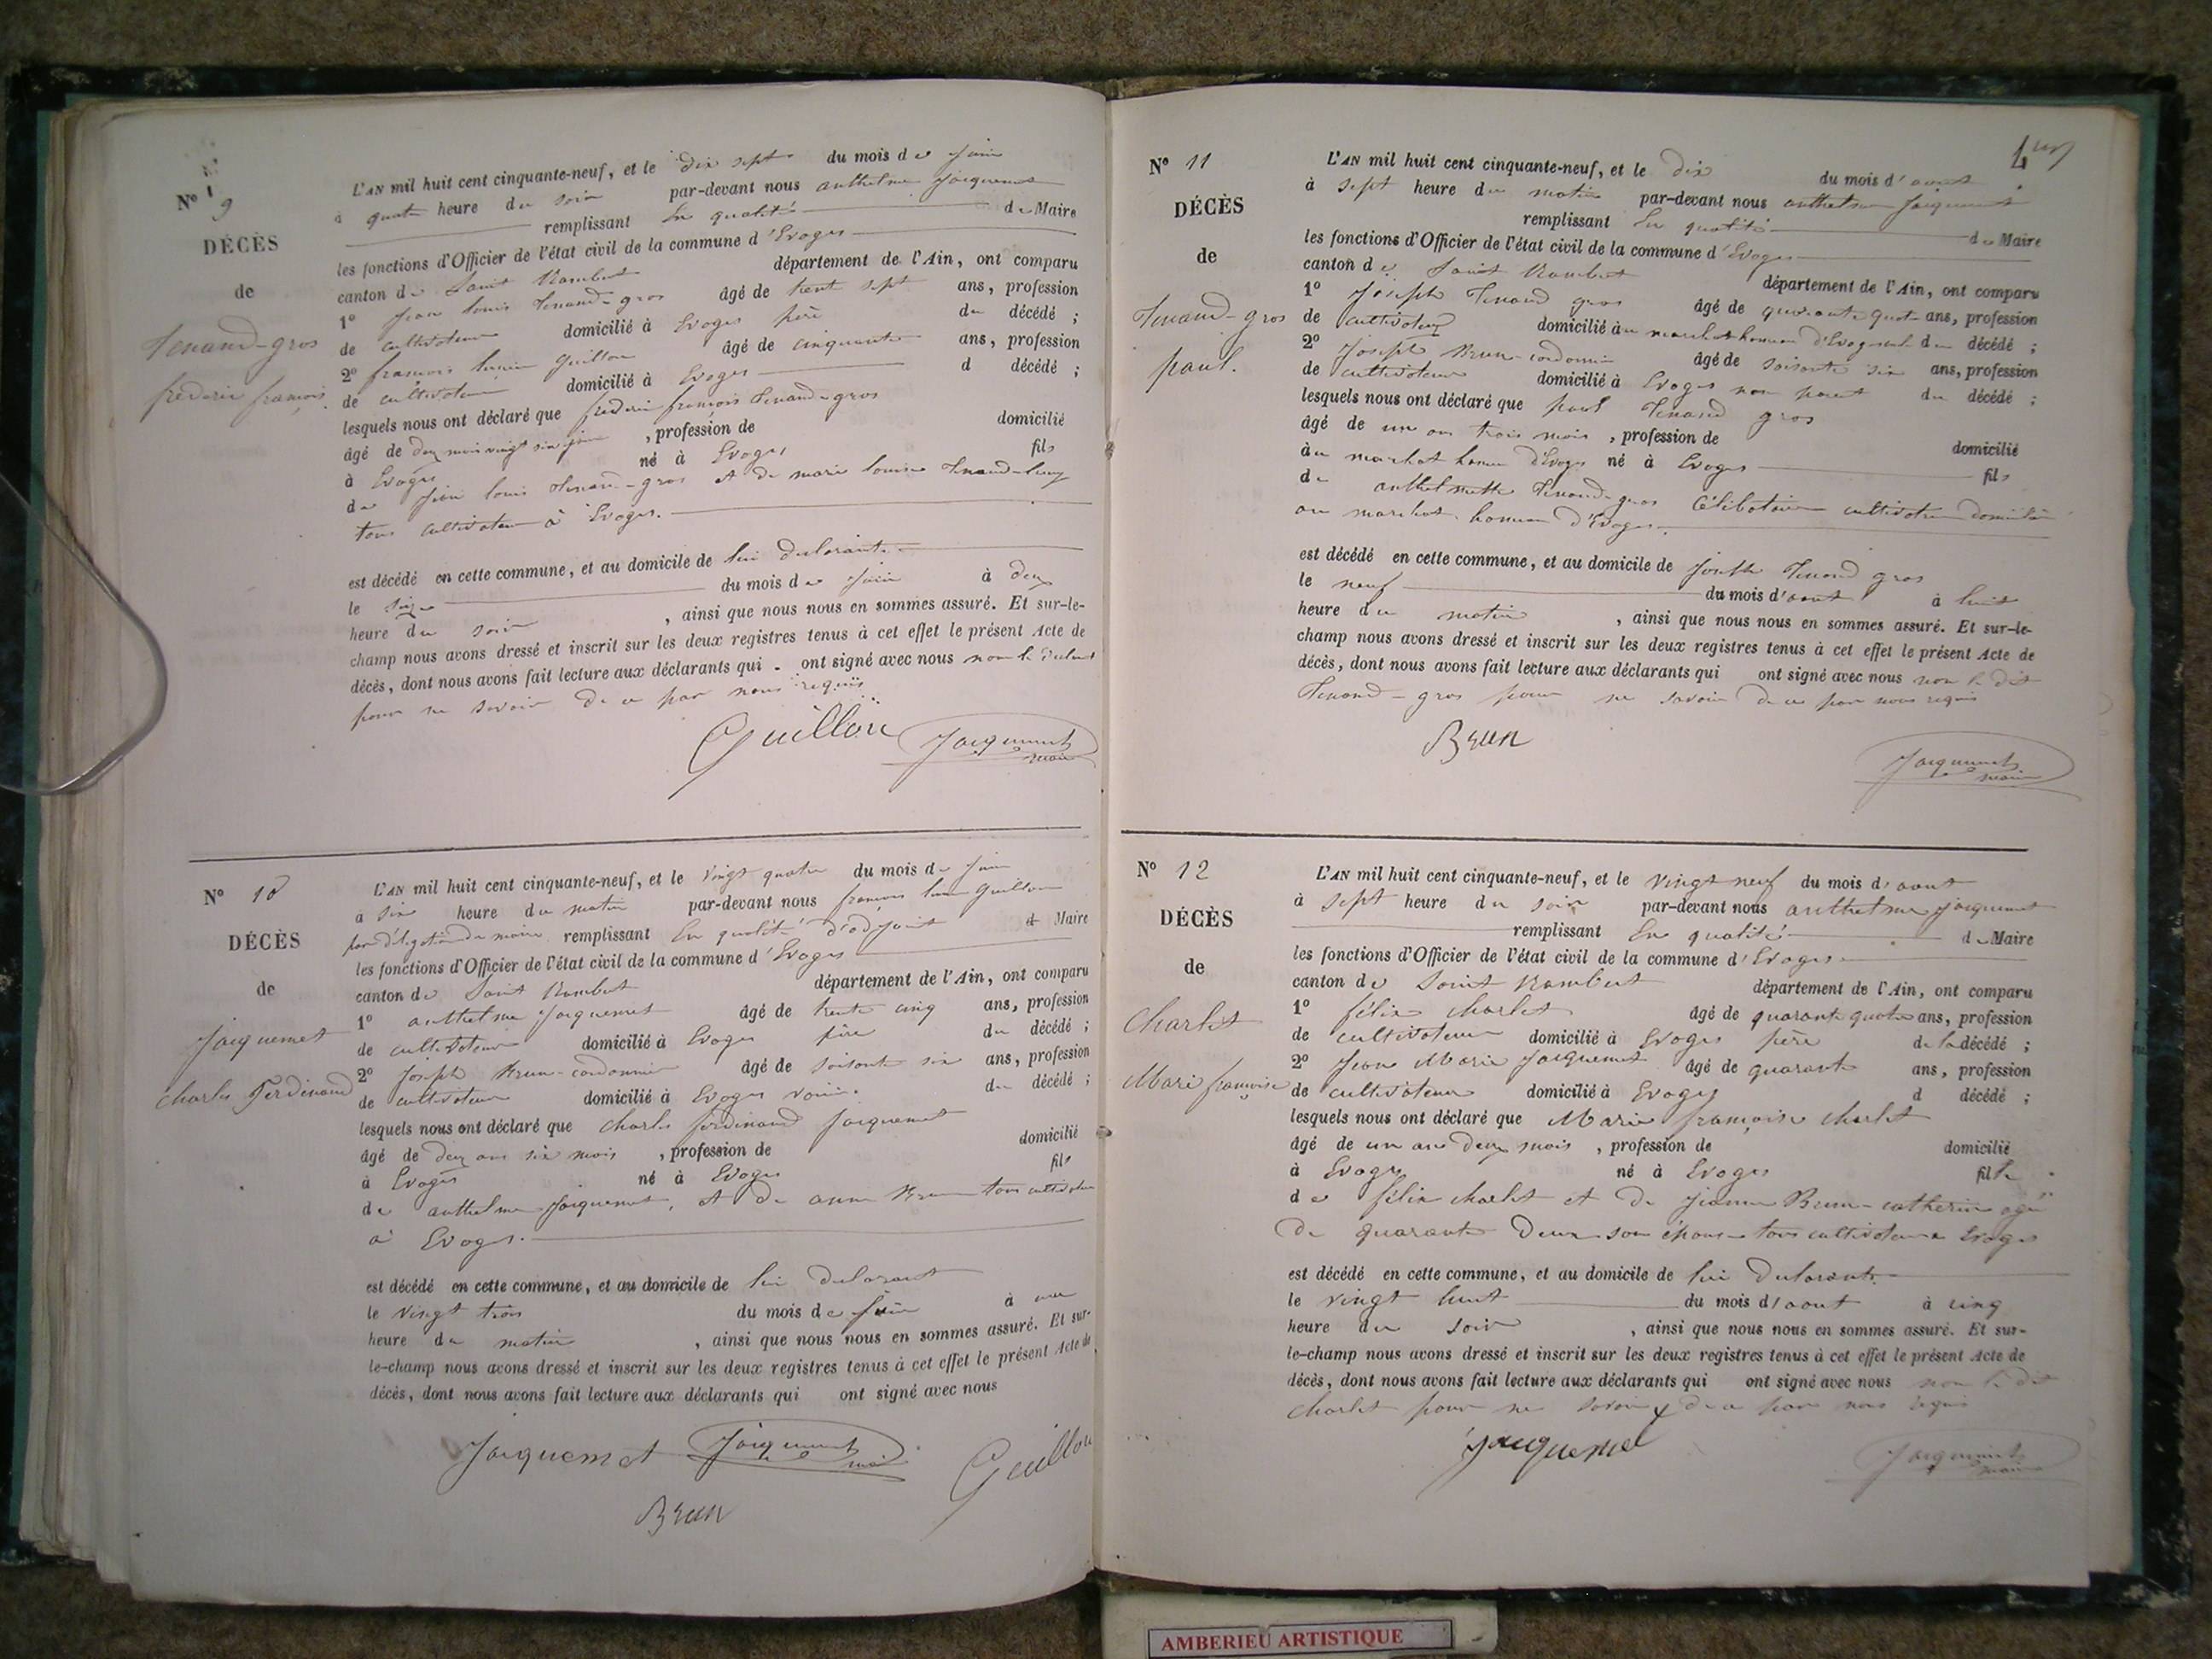 Nº 9
DÉCÈS
de
Tenand-gros
frédéric françois
L'AN mil huit cent cinquante-neuf, et le dix sept du mois de juin
à quatre heure du soir par-devant nous anthelme Jacquemet
remplissant en qualité de Maire
les fonctions d'Officier de l'état civil de la commune d'Evoges
canton de Saint Rambert département de l'Ain, ont comparu
1º Jean louis Tenand-gros âgé de trent sept ans, profession
de cultivateur domicilié à Evoges père du décédé ;
2º françois lucien Guillon âgé de cinquante ans, profession
de cultivateur domicilié à Evoges d décédé ;
lesquels nous ont déclaré que frédéric françois Tenand-gros
âgé de deux mois vingt six jours , profession de domicilié
à Evoges né à Evoges fils
de Jean louis Tenand-gros et de marie louise Tenand
tous cultivateurs à Evoges.
est décédé en cette commune, et au domicile de lui déclarant
le seize du mois de juin à deux
heure du soir , ainsi que nous nous en sommes assuré. Et sur-le-
champ nous avons dressé et inscrit sur les deux registres tenus à cet effet le présent Acte de
décès, dont nous avons fait lecture aux déclarants qui ont signé avec nous non le
pour ne savoir de ce par nous requis
Guillon Jacquemet maire
Nº 10
DÉCÈS
de
Jacquemet
Charles Ferdinand
L'AN mil huit cent cinquante-neuf, et le vingt quatre du mois de juin
à six heure du matin par-devant nous françois lucien Guillon
par délégation du maire remplissant en qualité d'adjoint d Maire
les fonctions d'Officier de l'état civil de la commune d'Evoges
canton de Saint Rambert département de l'Ain, ont comparu
1º anthelme Jacquemet âgé de trente cinq ans, profession
de cultivateur domicilié à Evoges père du décédé ;
2º Joseph Brun-cordonnier âgé de soixante six ans, profession
de cultivateur domicilié à Evoges voisin du décédé ;
lesquels nous ont déclaré que charles ferdinand Jacquemet
âgé de deux ans six mois , profession de domicilié
à Evoges né à Evoges fils
de anthelme Jacquemet, et de anne Brun tous cultivateurs
à Evoges.
est décédé en cette commune, et au domicile de lui déclarant
le vingt trois du mois de juin à une
heure du matin , ainsi que nous nous en sommes assuré. Et sur-
le-champ nous avons dressé et inscrit sur les deux registres tenus à cet effet le présent Acte de
décès, dont nous avons fait lecture aux déclarants qui ont signé avec nous
Jacquemet Jacquemet maire Guillon
Brun
Nº 11
DÉCÈS
de
Tenand-gros
paul.
L'AN mil huit cent cinquante-neuf, et le dix du mois d'aout
à sept heure du matin par-devant nous anthelme Jacquemet
remplissant en qualité de Maire
les fonctions d'Officier de l'état civil de la commune d'Evoges
canton de Saint Rambert département de l'Ain, ont comparu
1º Joseph Tenand gros âgé de quarante quatre ans, profession
de cultivateur domicilié au d'Evoges du décédé ;
2º Joseph Brun-cordonnier âgé de soixante six ans, profession
de cultivateur domicilié à Evoges non parent du décédé ;
lesquels nous ont déclaré que paul Tenand gros
âgé de un an trois mois , profession de domicilié
au d'Evoges né à Evoges fils
de anthelmette Tenand-gros Célibataire cultivatrice domiciliée
au d'Evoges.
est décédé en cette commune, et au domicile de Joseph Tenand gros
le neuf du mois d'aout à huit
heure du matin , ainsi que nous nous en sommes assuré. Et sur-le-
champ nous avons dressé et inscrit sur les deux registres tenus à cet effet le présent Acte de
décès, dont nous avons fait lecture aux déclarants qui ont signé avec nous non le dit
Tenand-gros pour ne savoir de ce par nous requis
Brun
Jacquemet maire
Nº 12
DÉCÈS
de
Charlet
Marie françoise
L'AN mil huit cent cinquante-neuf, et le vingt neuf du mois d'aout
à sept heure du soir par-devant nous anthelme Jacquemet
remplissant en qualité de Maire
les fonctions d'Officier de l'état civil de la commune d'Evoges
canton de Saint Rambert département de l'Ain, ont comparu
1º félix charlet âgé de quarante quatre ans, profession
de cultivateur domicilié à Evoges père de la décédé ;
2º Jean Marie Jacquemet âgé de quarante ans, profession
de cultivateur domicilié à Evoges d décédé ;
lesquels nous ont déclaré que Marie françoise charlet
âgé de un an deux mois , profession de domicilié
à Evoges né à Evoges fille
de félix charlet et de Jeanne Brun-catherin agée
de quarante deux son épouse tous cultivateurs à Evoges
est décédé en cette commune, et au domicile de lui déclarant
le vingt huit du mois d'aout à cinq
heure du soir , ainsi que nous nous en sommes assuré. Et sur-
le-champ nous avons dressé et inscrit sur les deux registres tenus à cet effet le présent Acte de
décès, dont nous avons fait lecture aux déclarants qui ont signé avec nous non le dit
charlet pour ne savoir de ce par nous requis
Jacquemet
Jacquemet maire
AMBERIEU ARTISTIQUE